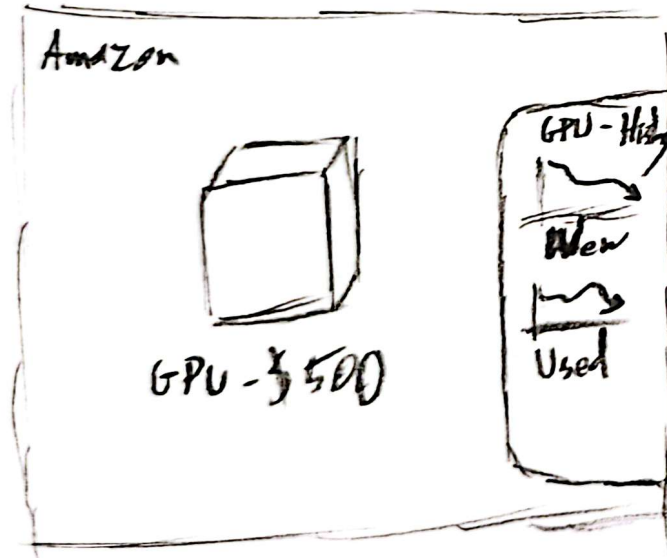 Amazon
GPU - $500
GPU - Hist
New
Used